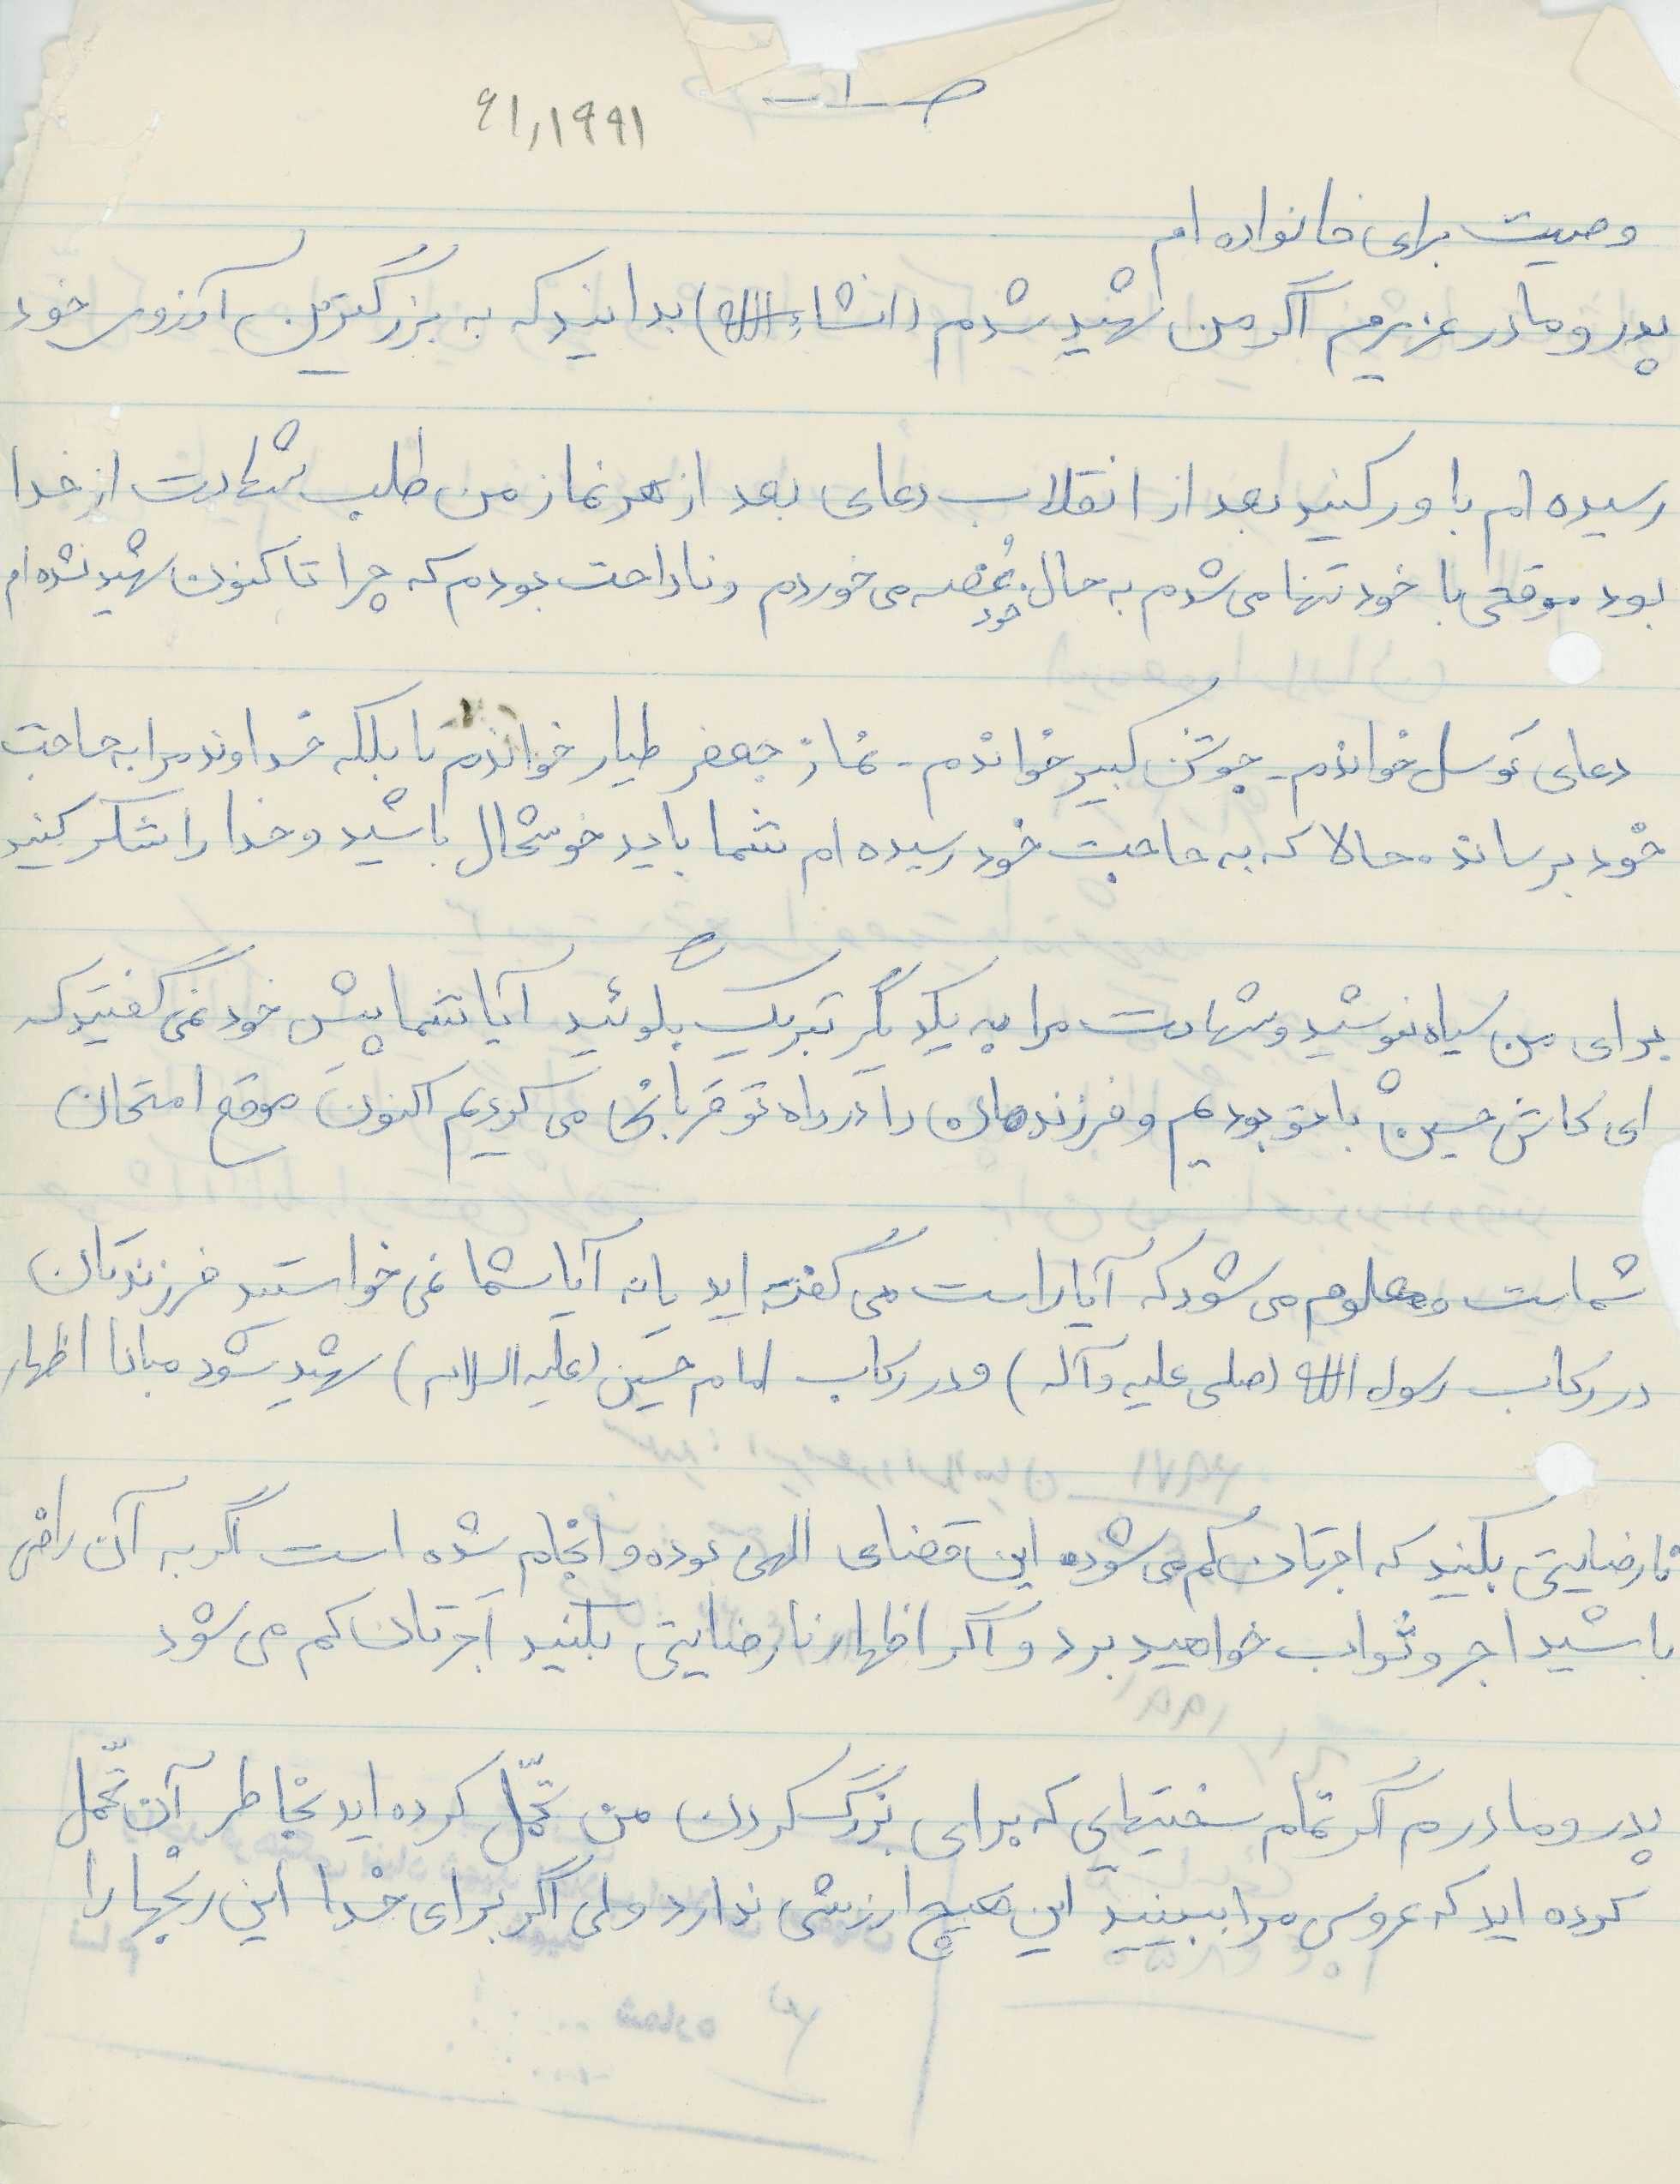 ۶۱٫۱۹۹۱
وصیت برای خانواده ام
پدر و مادر عزیزم اگر من شهید شدم (انشاءالله) بدانید که به بزرگترین آرزوی خود
رسیده ام باور کنید بعد از انقلاب دعای بعد از هر نماز من طلب شهادت از خدا
بود موقعی با خود تنها می شدم به حال خود غصه می خوردم و ناراحت بودم که چرا تا کنون شهید نشده ام
دعای توسل خواندم - جوشن کبیر خواندم - نماز جعفر طیار خواندم تا بلکه خداوند مرا به حاجت
خود برساند. حالا که به حاجت خود رسیده ام شما باید خوشحال باشید و خدا را شکر کنید
برای من سیاه نپوشید و شهادت مرا به یکدیگر تبریک بگوئید آیا شما پیش خود نمی گفتید که
ای کاش حسین با تو بودیم و فرزندمان را در راه تو قربانی می کردیم اکنون موقع امتحان
شماست معلوم می شود که آیا راست می گفته اید یا نه آیا شما نمی خواستید فرزندتان
در رکاب رسول الله (صلی علیه و آله) و در رکاب امام حسین (علیه السلام) شهید شود مبادا اظهار
نارضایتی بکنید که اجرتان کم می شود این قضای الهی بوده و انجام شده است اگر به آن راضی
باشید اجر و ثواب خواهید برد و اگر اظهار نارضایتی بکنید اجرتان کم می شود
پدر و مادرم اگر تمام سختیهایی که برای بزرگ کردن من تحمّل کرده اید بخاطر آن تحمّل
کرده اید که عروسی مرا ببینید این هیچ ارزشی ندارد ولی اگر برای خدا این رنجها را